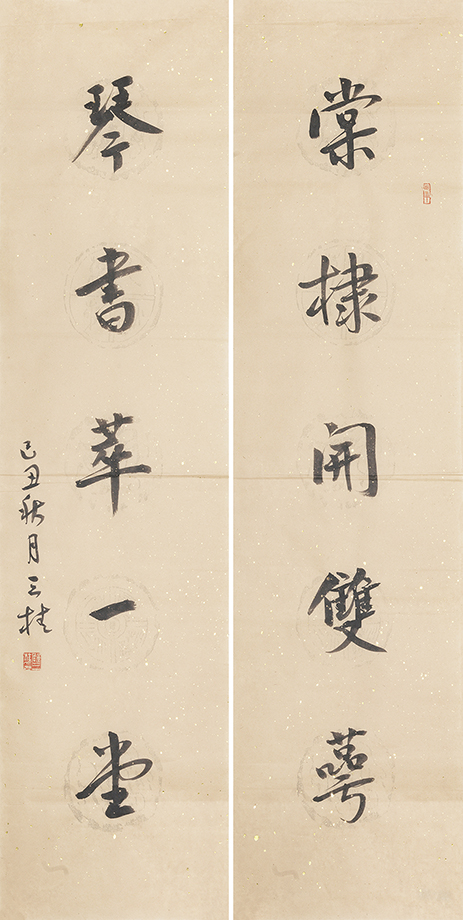 棠棣開雙萼
琴書萃一堂
己丑秋月三桂